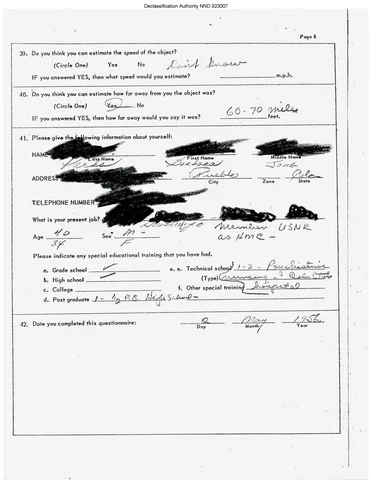 Declassification Authority NND 923007
Page 8
39. Do you think you can estimate the speed of the object?
(Circle One) Yes No Don't know
IF you answered YES, then what speed would you estimate? m.p.h.
40. Do you think you can estimate how far away from you the object was?
(Circle One) Yes No
IF you answered YES, then how far away would you say it was? 60-70 miles feet.
41. Please give the following information about yourself:
NAME
Last Name First Name Middle Name
ADDRESS Pueblo Colo
City Zone State
TELEPHONE NUMBER
What is your present job? Member USNR
as HMC -
Age 40 Sex M -
34 F
Please indicate any special educational training that you have had.
a. Grade school ✓ e. Technical school 1-2 - Psychiatric
b. High school ✓ (Type) nursing - Colo State
c. College f. Other special training hospital
d. Post graduate 1- High School -
42. Date you completed this questionnaire: May 1956
Day Month Year